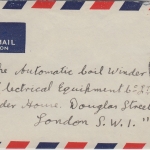 MAIL
ION
he Automatic Coil Winder
lectrical Equipment
der House. Douglas Street
London S.W.1."